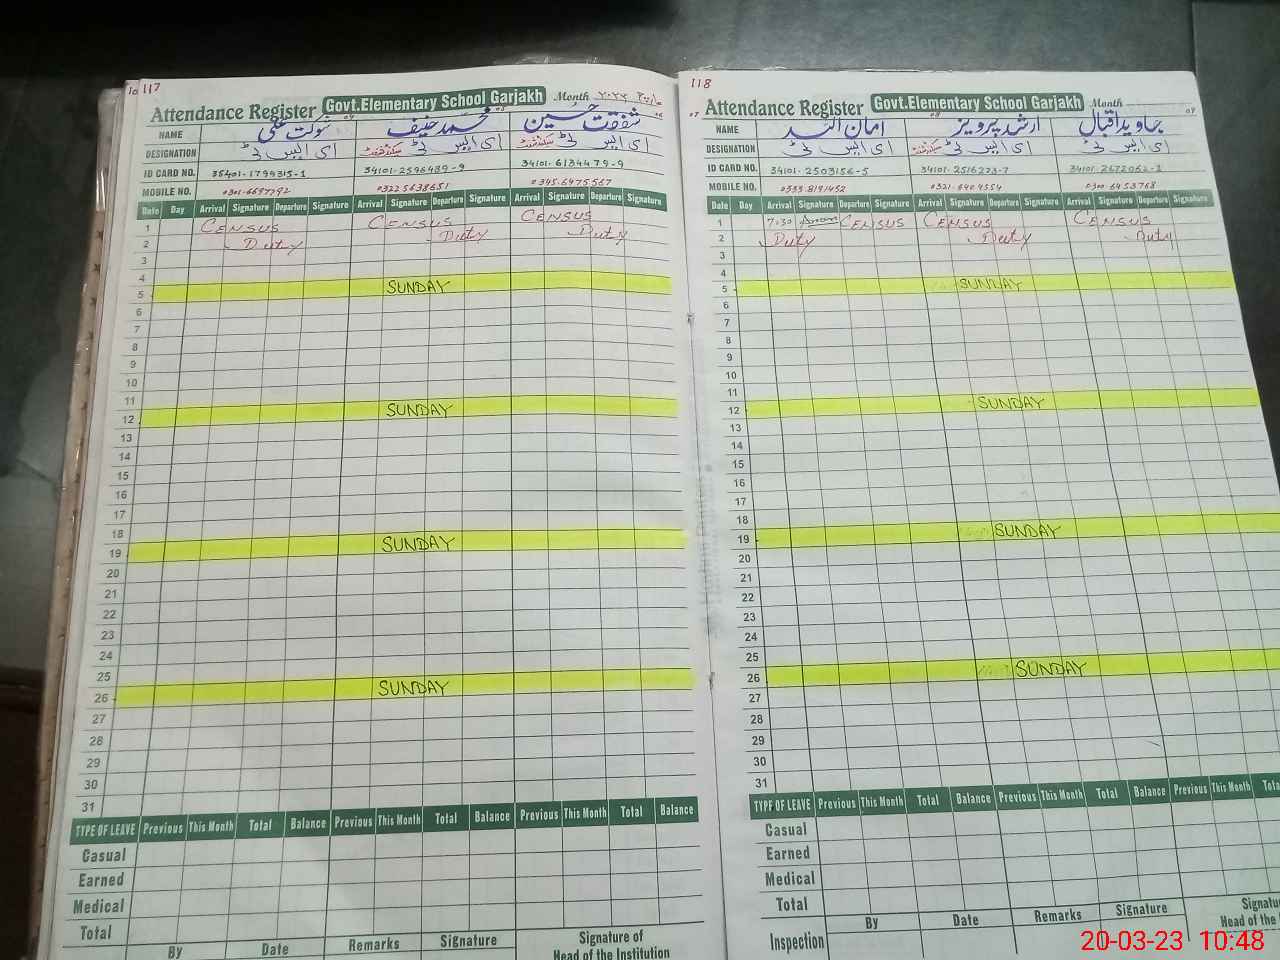 117
Attendance Register Govt.Elementary School Garjakh Month
NAME شوکت علی محمد حنیف شفقت حسین
DESIGNATION ای ایس ٹی ای ایس ٹی ای ایس ٹی
ID CARD NO. 35401-1794315-1 34101-2596489-9 34101-6134479-9
MOBILE NO. 0301-6697292 0322 5638651 0345-6475567
Date Day Arrival Signature Departure Signature Arrival Signature Departure Signature Arrival Signature Departure Signature
1 CENSUS CENSUS CENSUS
2 Duty Duty Duty
3
4
5 SUNDAY
6
7
8
9
10
11
12 SUNDAY
13
14
15
16
17
18
19 SUNDAY
20
21
22
23
24
25
26 SUNDAY
27
28
29
30
31
TYPE OF LEAVE Previous This Month Total Balance Previous This Month Total Balance Previous This Month Total Balance
Casual
Earned
Medical
Total
By Date Remarks Signature Signature of
Head of the Institution
118
Attendance Register Govt.Elementary School Garjakh Month
NAME امان اللہ ارشد پرویز جاوید اقبال
DESIGNATION ای ایس ٹی ای ایس ٹی ای ایس ٹی
ID CARD NO. 34101-2503156-5 34101-2516273-7 34101-2672062-1
MOBILE NO. 0333-8191452 0321-6404554 0300 6453768
Date Day Arrival Signature Departure Signature Arrival Signature Departure Signature Arrival Signature Departure Signature
1 7:30 CENSUS CENSUS CENSUS
2 Duty Duty Duty
3
4
5 SUNDAY
6
7
8
9
10
11
12 SUNDAY
13
14
15
16
17
18
19 SUNDAY
20
21
22
23
24
25
26 SUNDAY
27
28
29
30
31
TYPE OF LEAVE Previous This Month Total Balance Previous This Month Total Balance Previous This Month Total
Casual
Earned
Medical
Total
Inspection By Date Remarks Signature
Head of the
20-03-23 10:48